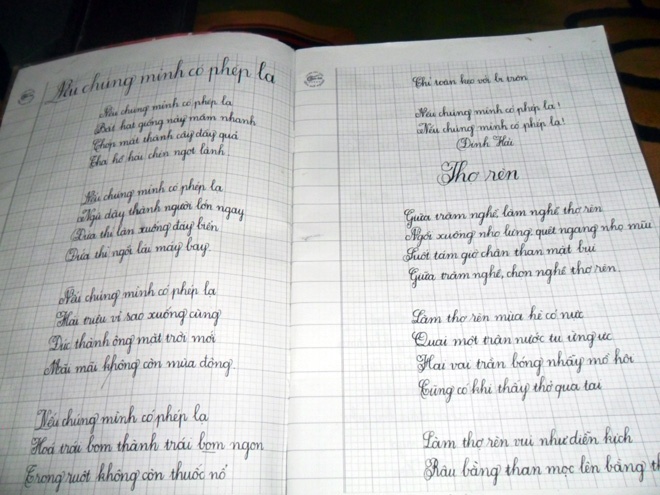 Nếu chúng mình có phép lạ
Nếu chúng mình có phép lạ
Bắt hạt giống nảy mầm nhanh
Chớp mắt thành cây đầy quả
Tha hồ hái chén ngọt lành
Nếu chúng mình có phép lạ
Ngủ dậy thành người lớn ngay
Đứa thì lặn xuống đáy biển
Đứa thì ngồi lái máy bay.
Nếu chúng mình có phép lạ
Hái triệu vì sao xuống cùng
Đúc thành ông mặt trời mới
Mãi mãi không còn mùa đông.
Nếu chúng mình có phép lạ
Hoá trái bom thành trái bom ngon
Trong ruột không còn thuốc nổ
Chỉ toàn kẹo với bi tròn
Nếu chúng mình có phép lạ!
Nếu chúng mình có phép lạ!
Định Hải
Thợ rèn
Giữa trăm nghề, làm nghề thợ rèn
Ngồi xuống nhọ lưng, quệt ngang nhọ mũi
Suốt tám giờ chân than mặt bụi
Giữa trăm nghề, chọn nghề thợ rèn.
Làm thợ rèn mùa hè có nực
Quai một trận, nước tu ừng ực
Hai vai trần bóng nhẫy mồ hôi
Cũng có khi thấy thở qua tai
Làm thợ rèn vui như diễn kịch
Râu bằng than mọc lên bằng th